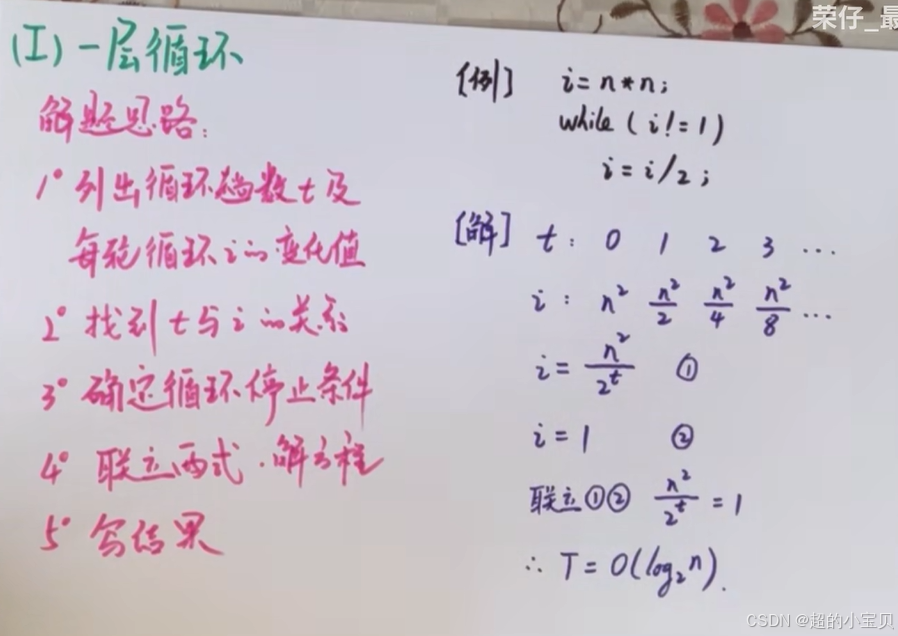 荣仔_最
(I) 一层循环
解题思路:
1° 列出循环趟数 t 及
每轮循环 i 的变化值
2° 找到 t 与 i 的关系
3° 确定循环停止条件
4° 联立两式,解方程
5° 写结果
[例] i = n * n;
while ( i != 1 )
i = i / 2;
[解] t: 0 1 2 3 ...
i: n² n²/2 n²/4 n²/8 ...
i = n²/2^t ①
i = 1 ②
联立①② n²/2^t = 1
∴ T = O(log₂n).
CSDN @超的小宝贝